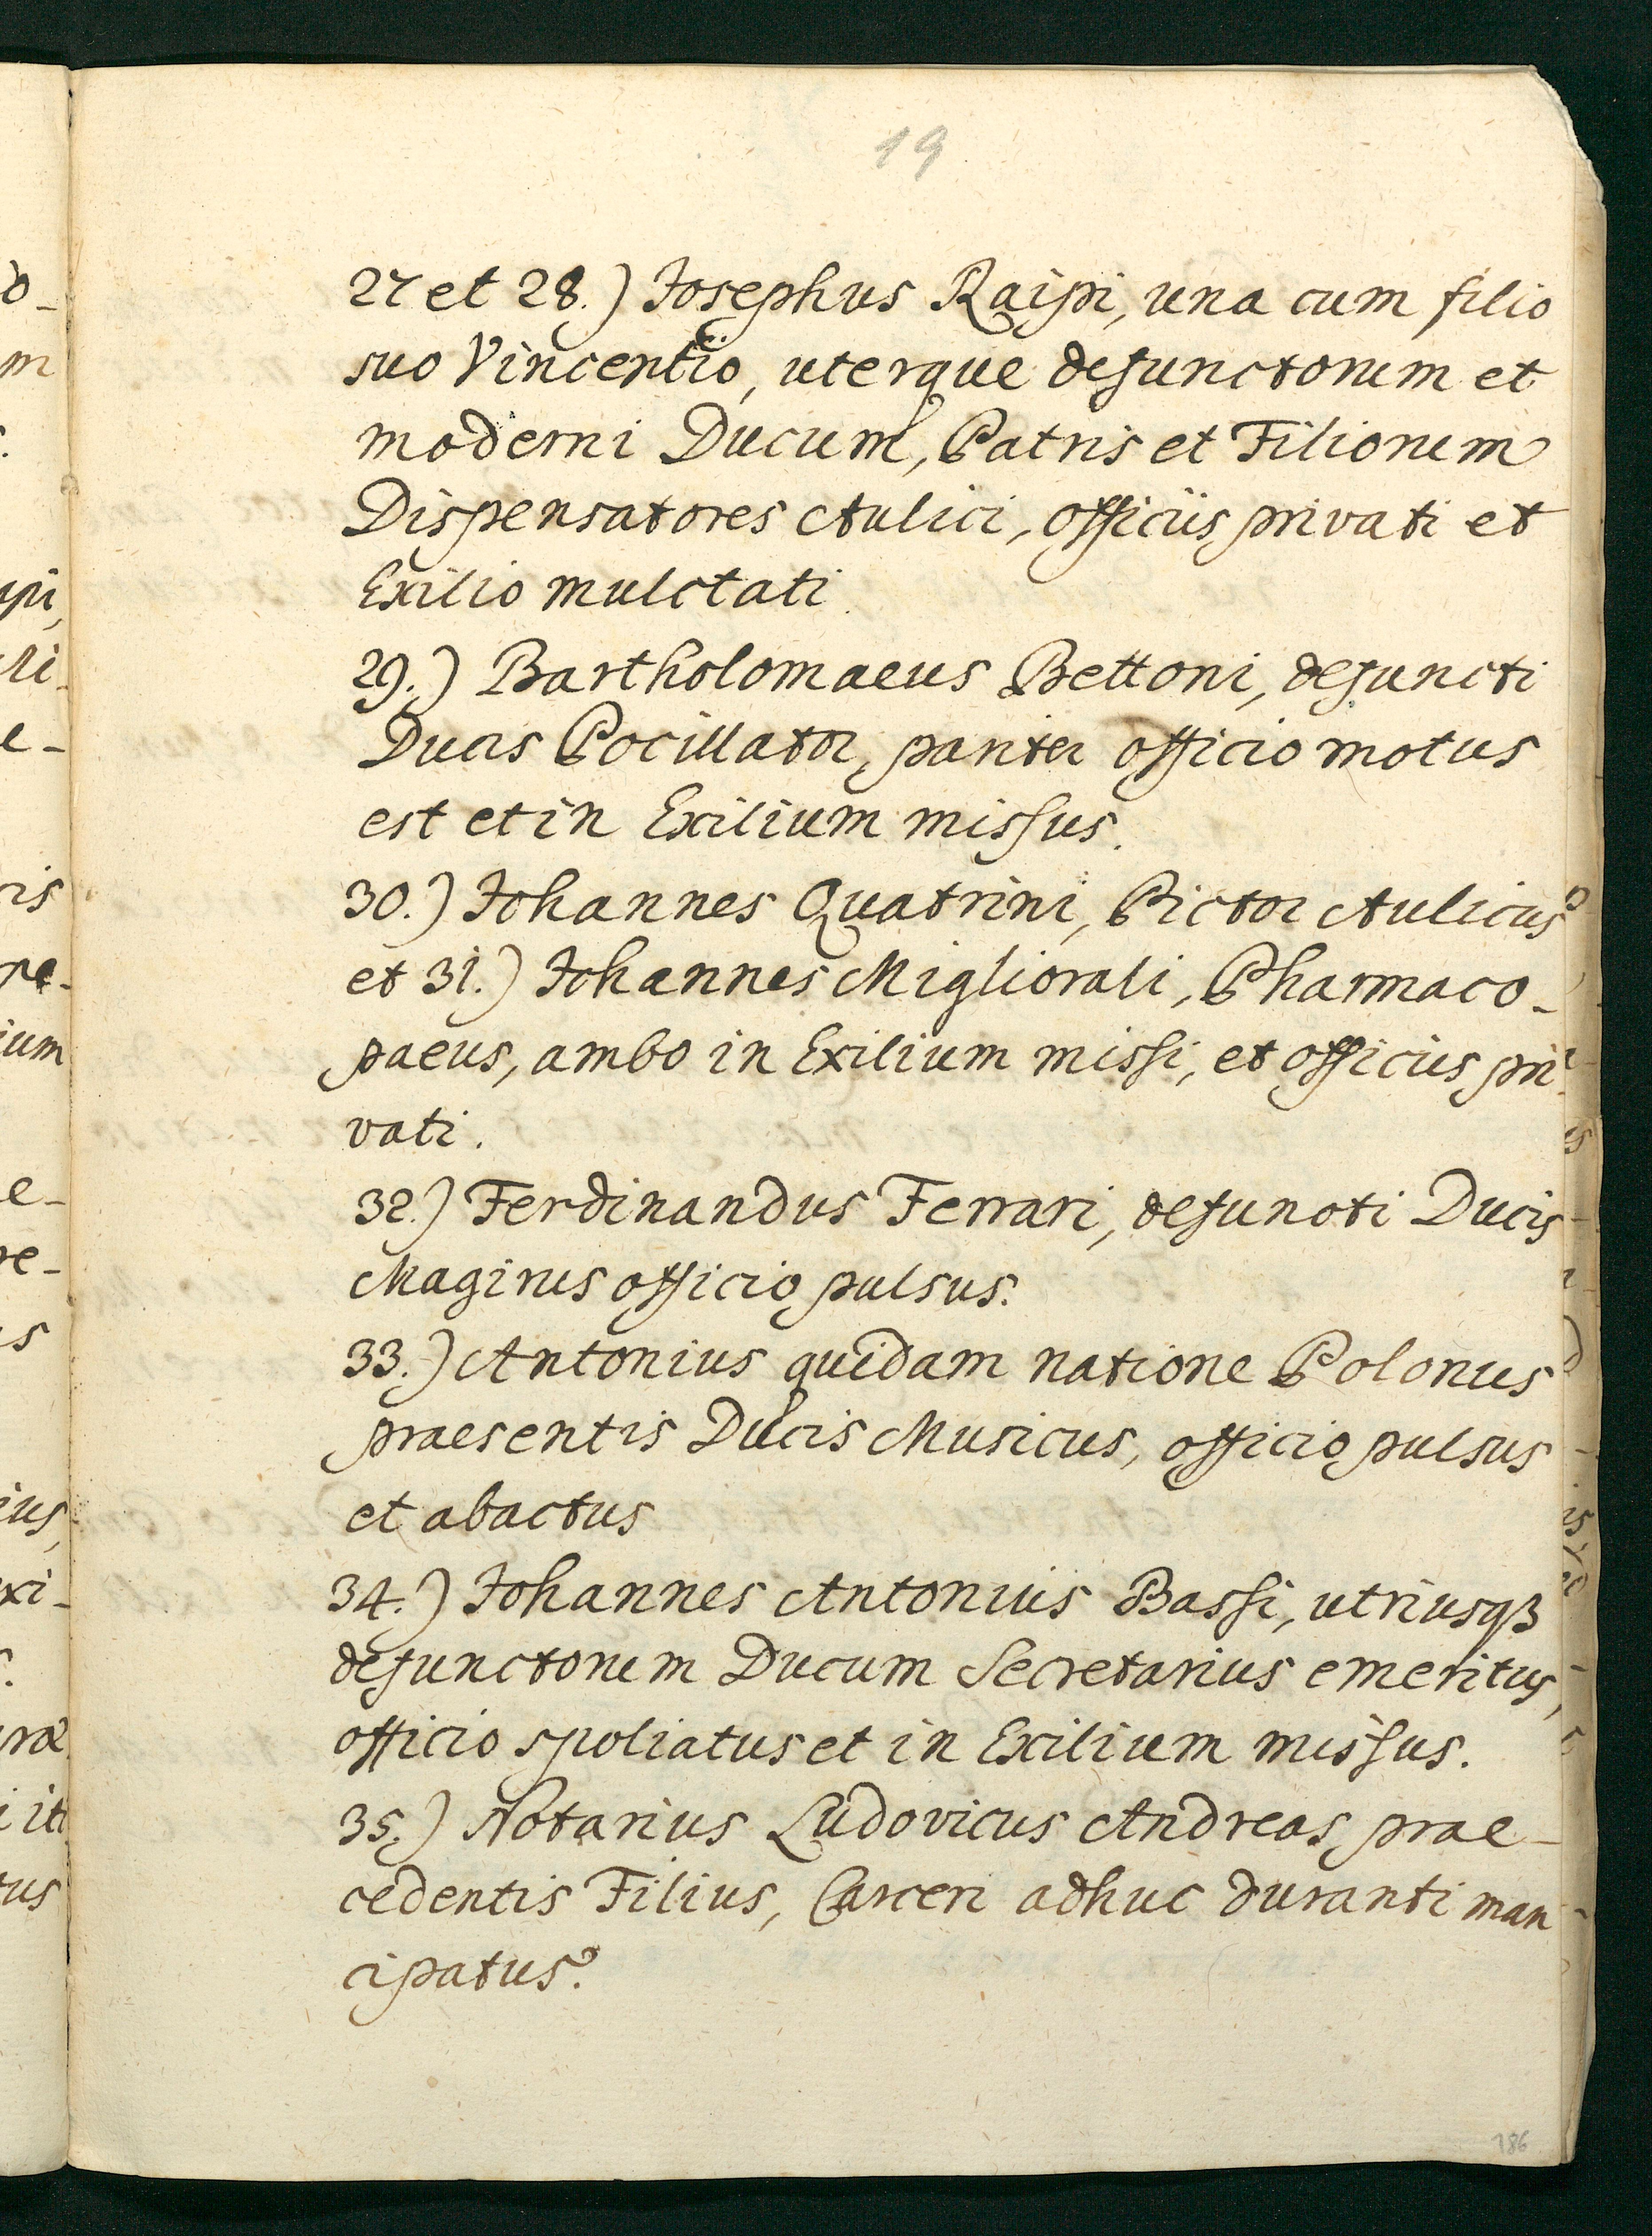 19
27 et 28.) Josephus Raipi, una cum filio
suo Vincentio, uterque defunctorum et
moderni Ducum, Patris et Filiorum
Dispensatores Aulici, officiis privati et
Exilio mulctati.
29.) Bartholomaeus Bettoni, defuncti
Ducis Pocillator, pariter officio motus
est et in Exilium missus.
30.) Johannes Quatrini, Pictor Aulicus
et 31.) Johannes Migliorali, Pharmaco-
paeus, ambo in Exilium missi, et officiis pri-
vati.
32.) Ferdinandus Ferrari, defuncti Ducis
Magirus officio pulsus.
33.) Antonius quidam natione Polonus
praesentis Ducis Musicus, officio pulsus
et abactus
34.) Johannes Antonius Bassi, utriusqꝫ
defunctorum Ducum Secretarius emeritus,
officio spoliatus et in Exilium missus.
35.) Notarius Ludovicus Andreas prae-
cedentis Filius, Carceri adhuc duranti man
cipatus.
186